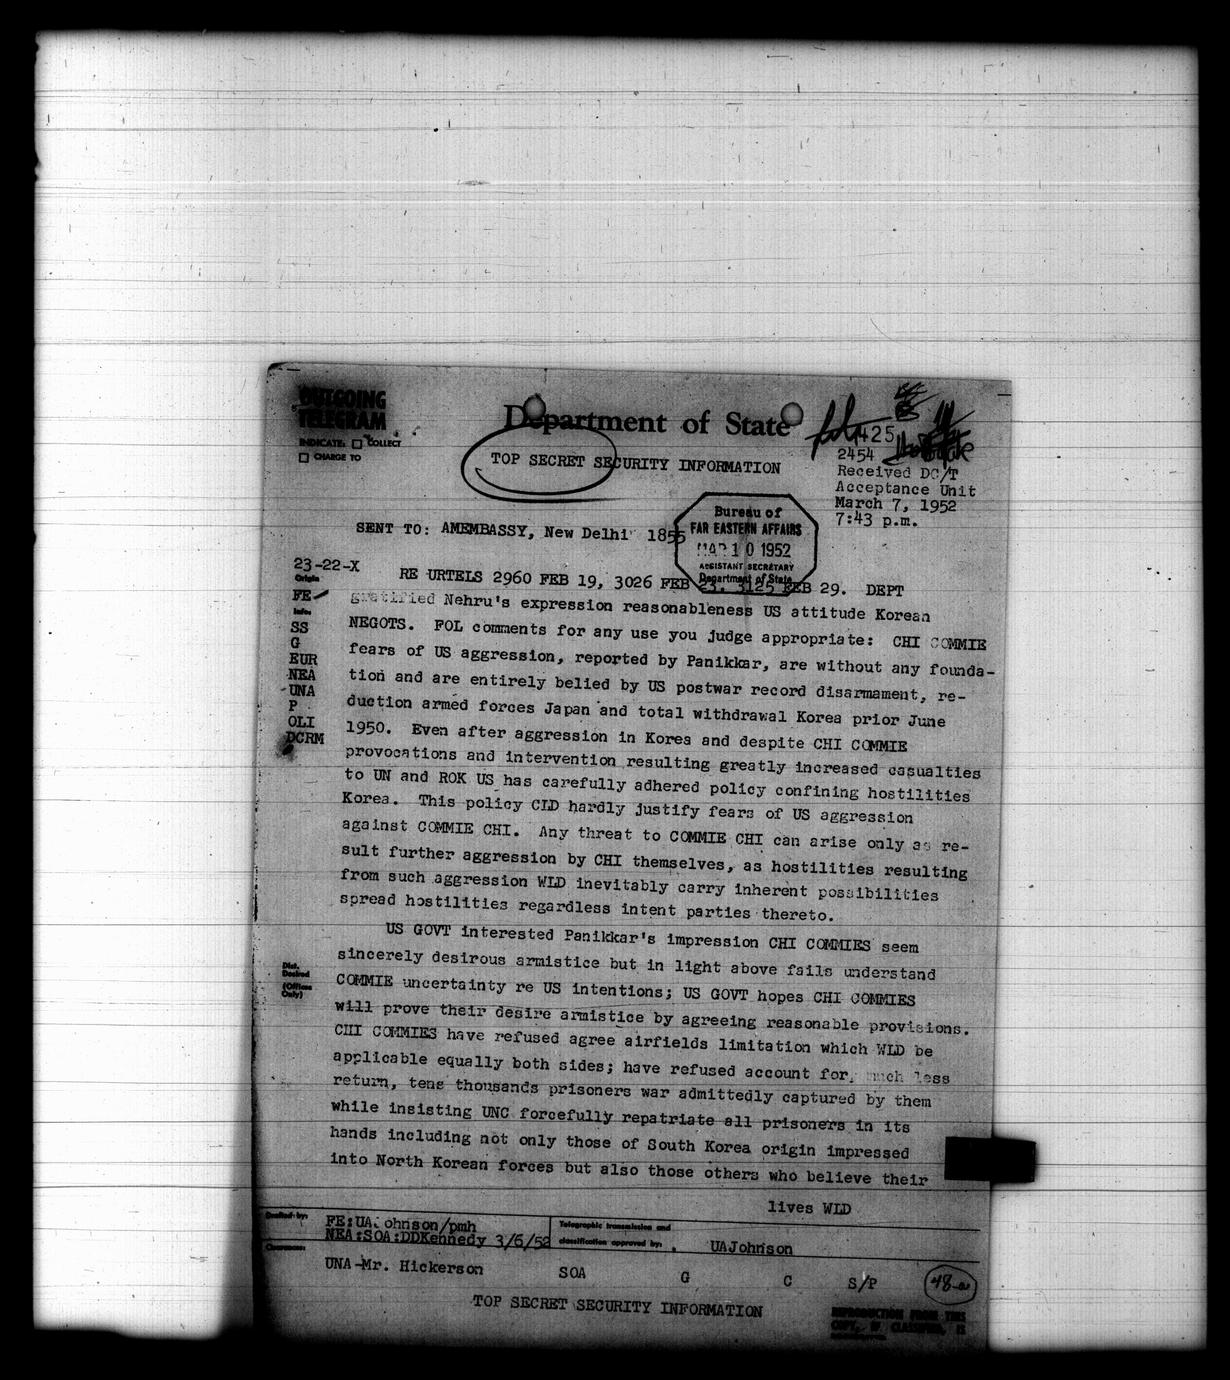 OUTGOING
TELEGRAM
INDICATE: ☐ COLLECT
☐ CHARGE TO
Department of State
TOP SECRET SECURITY INFORMATION
1425
2454
Received DC/T
Acceptance Unit
March 7, 1952
7:43 p.m.
SENT TO: AMEMBASSY, New Delhi 1855
Bureau of
FAR EASTERN AFFAIRS
MAR 10 1952
ASSISTANT SECRETARY
Department of State
23-22-X
Origin
FE
Info:
SS
G
EUR
NEA
UNA
P
OLI
DCRM
RE URTELS 2960 FEB 19, 3026 FEB 23, 3125 FEB 29. DEPT
gratified Nehru's expression reasonableness US attitude Korean
NEGOTS. FOL comments for any use you judge appropriate: CHI COMMIE
fears of US aggression, reported by Panikkar, are without any founda-
tion and are entirely belied by US postwar record disarmament, re-
duction armed forces Japan and total withdrawal Korea prior June
1950. Even after aggression in Korea and despite CHI COMMIE
provocations and intervention resulting greatly increased casualties
to UN and ROK US has carefully adhered policy confining hostilities
Korea. This policy CLD hardly justify fears of US aggression
against COMMIE CHI. Any threat to COMMIE CHI can arise only as re-
sult further aggression by CHI themselves, as hostilities resulting
from such aggression WLD inevitably carry inherent possibilities
spread hostilities regardless intent parties thereto.
US GOVT interested Panikkar's impression CHI COMMIES seem
sincerely desirous armistice but in light above fails understand
COMMIE uncertainty re US intentions; US GOVT hopes CHI COMMIES
will prove their desire armistice by agreeing reasonable provisions.
CHI COMMIES have refused agree airfields limitation which WLD be
applicable equally both sides; have refused account for, much less
return, tens thousands prisoners war admittedly captured by them
while insisting UNC forcefully repatriate all prisoners in its
hands including not only those of South Korea origin impressed
into North Korean forces but also those others who believe their
lives WLD
Dist.
Desired
(Offices
Only)
Drafted by:
FE:UAJohnson/pmh
NEA:SOA:DDKennedy 3/6/52
Telegraphic transmission and
classification approved by:
UAJohnson
Clearances:
UNA-Mr. Hickerson
SOA
G
C
S/P
TOP SECRET SECURITY INFORMATION
REPRODUCTION FROM THIS
COPY, IF CLASSIFIED, IS